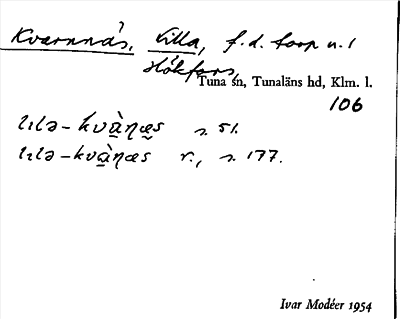 Kvarnnäs, Lilla, f.d. torp u. l
Hökfors,
Tuna sn, Tunaläns hd, Klm. l.
106
lɩlə-kvàηæs s. 51.
lɩlə-kvàηæs r., s. 177.
Ivar Modéer 1954